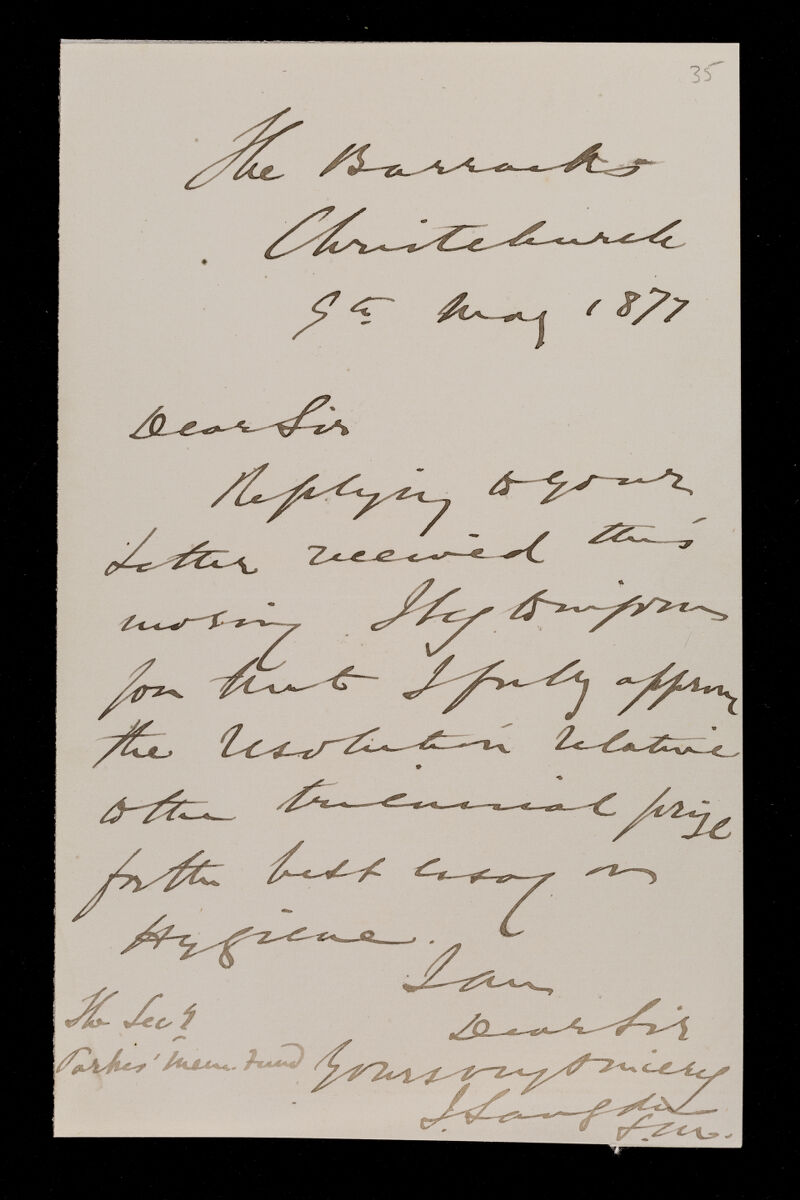 35
The Barracks
Christchurch
9th May 1877
Dear Sir
Replying to your
Letter received this
morning I beg to inform
you that I fully approve
the resolution relative
to the triennial prize
for the best essay on
Hygiene.
I am
Dear Sir
Yours very sincerely
J. Langdon
S.M.
The Secy
Parkes' Mem. Fund